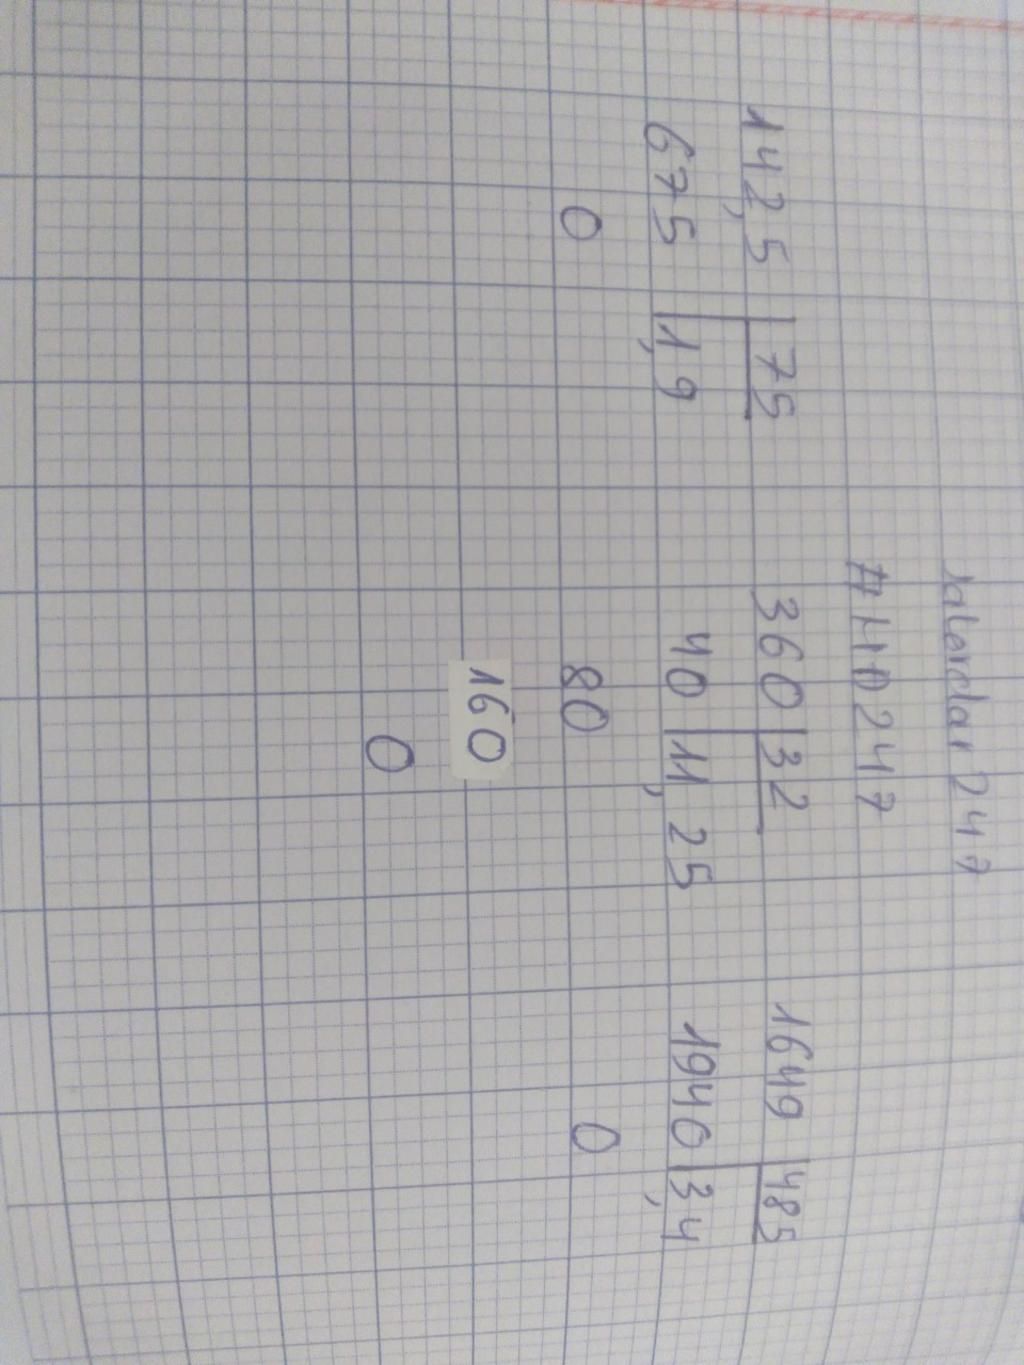 #HD247
142,5 | 75
675 | 1,9
0
360 | 32
40 | 11,25
80
160
0
1649 | 485
1940 | 3,4
0